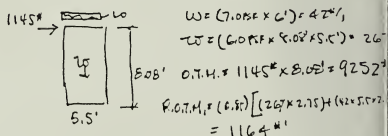 1145#
w
W
8.08'
5.5'
W = (7.0PSF x 6') = 42#/,
W = (6.0PSF x 8.08' x 5.5') = 26
O.T.M. = 1145# x 8.08' = 9252#
R.O.T.M. = (0.85) [(267 x 2.75) + (42 x 5.5 x 2.
= 1164#'